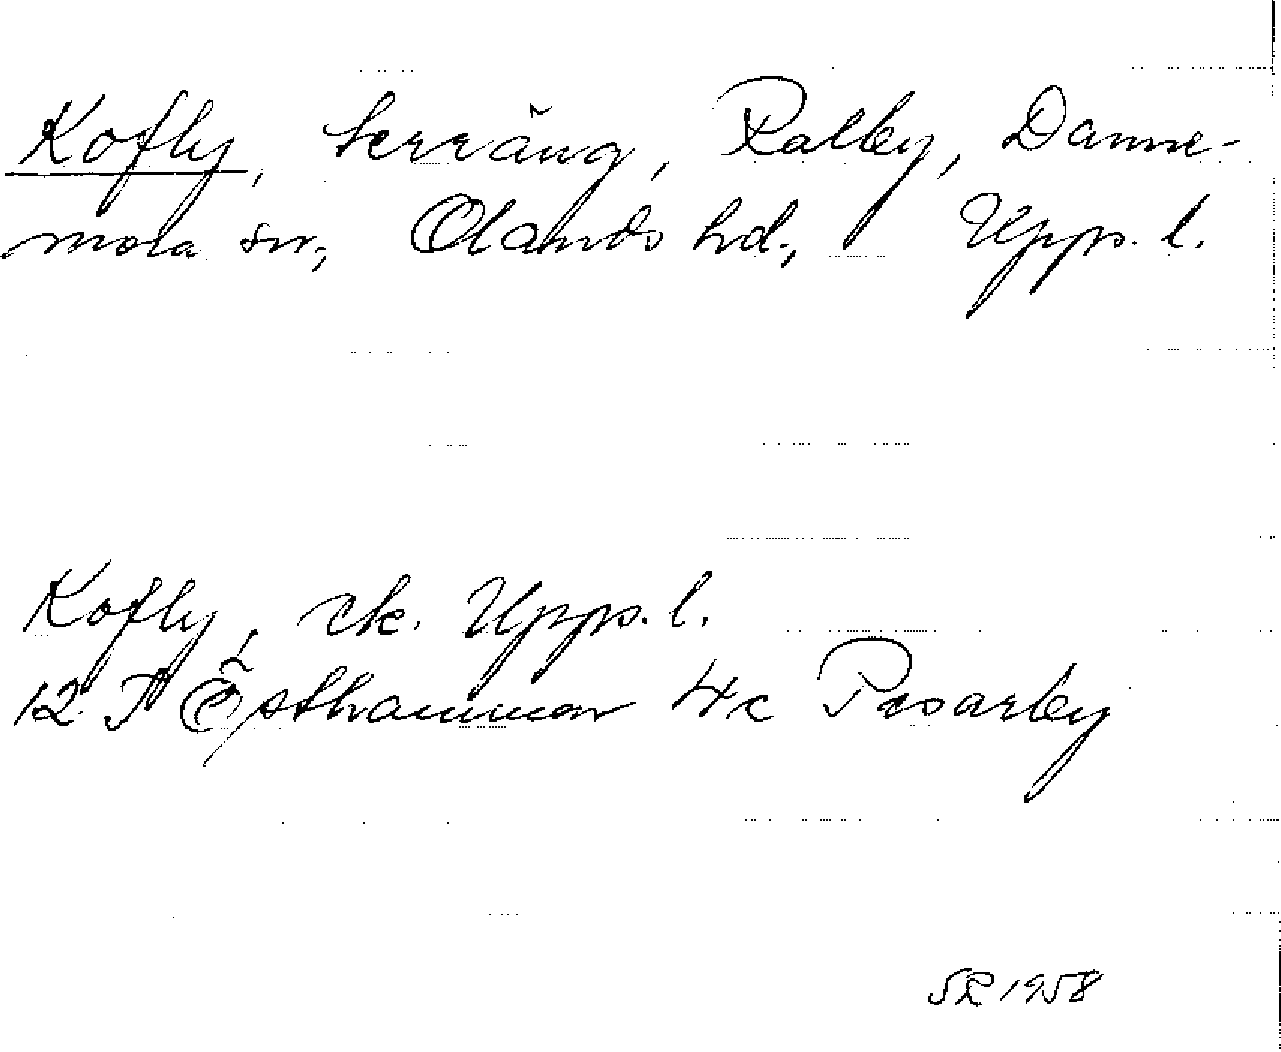 Kofly, terräng, Ralby, Danne-
mora sn, Olands hd., Upps. l.
Kofly, ek. Upps. l.
12 I Östhammar 4c
SR 1958